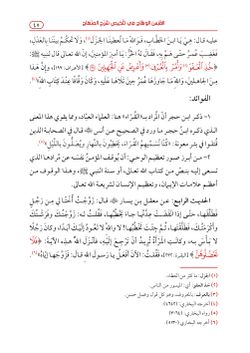 القبس الوهاج في تلخيص شرح المنهاج
عليه قال: هِيْ يا ابنَ الخطَّاب، فوالله ما تُعطينا الجَزْلَ(١)، ولا تحكُمُ بيننا بالعدل،
فغضِبَ عمرُ حتى هَمَّ به، فقال له الحُرُّ: يا أميرَ المؤمنين، إنَّ الله تعالى قال لنبيِّه ﷺ:
﴿خُذِ الْعَفْوَ(٢) وَأْمُرْ بِالْعُرْفِ(٣) وَأَعْرِضْ عَنِ الْجَاهِلِينَ﴾ [الأعراف: ١٩٩]، وإنَّ هذا
من الجاهلين، واللهِ ما جاوَزَها عمرُ حين تلاها عليه، وكان وقَّافًا عند كتابِ الله(٤)
الفوائد:
١- ذكر ابن حجر أن المراد بـ(القراء) هنا: العلماء العباد، وما يقوي هذا المعنى
الذي ذكره ابن حجر ما ورد في الصحيح عن أنس ﷺ قال في الصحابة الذين
قُتلوا في بئر معونة: «كنا نسميهم القراء، يحطبون بالنهار ويصلون بالليل»(٥)
٢- من أبرز صور تعظيم الوحي: أن يوقف المؤمن نفسه عن مرادها الذي
تسعى إليه بنص من كتاب الله تعالى، أو سنة النبي ﷺ، وهذا الوقوف من
أعظم علامات الإيمان، وتعظيم الإنسان لشريعة الله تعالى.
الحديث الرابع: عن معقل بن يسار ﷺ قال: زَوَّجتُ أختًا لي من رجلٍ
فطلَّقَها، حتى إذا انقضَتْ عِدَّتُها جاء يخطُبُها، فقلتُ له: زوَّجتُك وفرَشتُك
وأكرمتُك، فطلَّقتَها، ثم جئتَ تخطُبُها! لا والله لا تعودُ إليك أبدًا، وكان رجلًا
لا بأس به، وكانت المرأةُ تريدُ أن ترجعَ إليه، فأنزل الله هذه الآية: ﴿فَلَا
تَعْضُلُوهُنَّ﴾ [البقرة: ٢٣٢]، فقلتُ: الآن أفعلُ يا رسول الله، قال: فزوَّجَها إيَّاه(٦)
(١) الجزل: ما كثر من العطاء.
(٢) خذ العفو: أي الميسور من الناس.
(٣) بالعرف: بالمعروف وهو كل قول وفعل حسن.
(٤) أخرجه البخاري: (٤٦٤٢)
(٥) رواه البخاري: (٣٠٦٤)
(٦) أخرجه البخاري: (٥١٣٠)